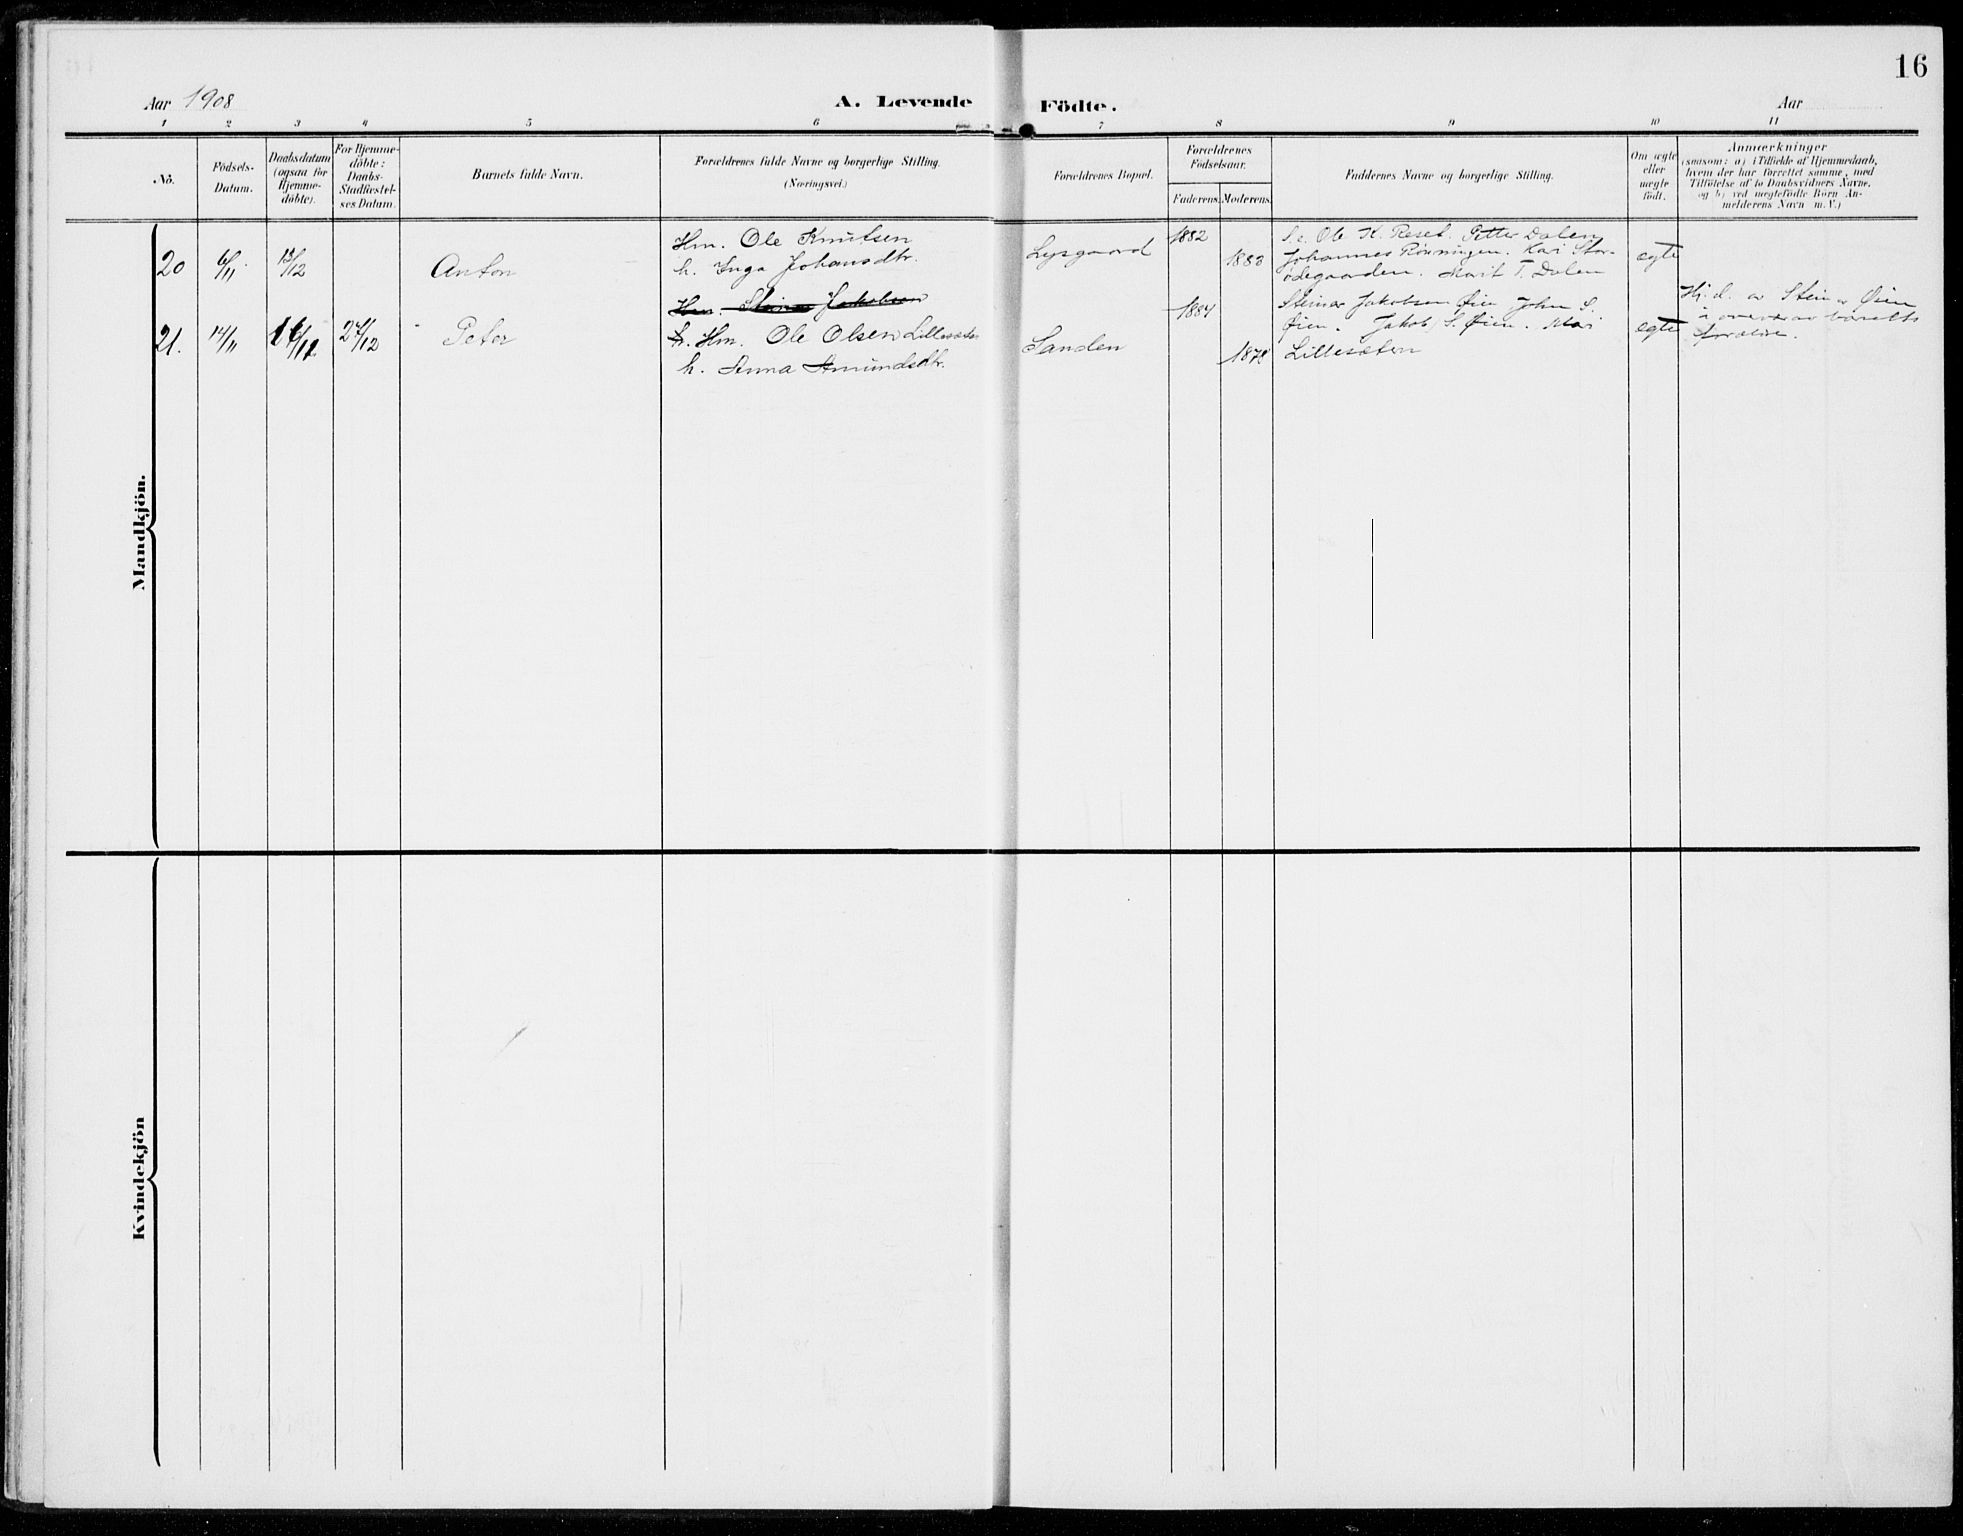 16
Aar 1908
A. Levende Födte.
Aar
1 2 3 4 5 6 7 8 9 10 11
No.
Födsels-
Datum.
Daabsdatum
(ogsaa for
Hjemme-
döbte).
For Hjemme-
döbte:
Daabs-
Stadfæstel-
ses Datum.
Barnets fulde Navn.
Forældrenes fulde Navne og borgerlige Stilling.
(Næringsvei.)
Forældrenes Bopæl.
Forældrenes
Födselsaar.
Faderens. Moderens.
Faddernes Navne og borgerlige Stilling.
Om ægte
eller
uægte
födt.
Anmærkninger
(saasom: a) i Tilfælde af Hjemmedaab,
hvem der har forrettet samme, med
Tilföielse af to Daabsvidners Navne,
og b) ved uægtefödte Börn An-
melderens Navn m. V.)
Mandkjön.
20 6/11 13/12 Anton
Hm. Ole Knutsen
h. Inga Johansdtr.
Lysgaard
1882
1883
S. e. Ole K. Reset. Petter Dalen
Johannes Rönningen. Kari Stor-
ødegaarden. Marit T. Dalen
egte
21. 14/11 27/12 Peter
Hm. Steinar Jakobsen
h. Hm. Ole Olsen Lillesæter
h. Anna Amundsdtr.
Sanden
1884
Steinar Jakobsen Øien John S.
Øien. Jakob S. Øien. Mari
Lillesæten
egte
Hj. d. av Steinar Øien
barnets
forældre.
Kvindekjön